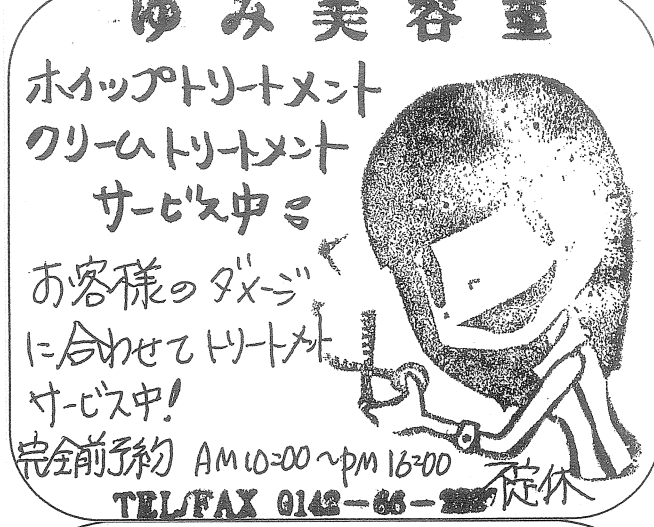 ゆみ美容室
ホイップトリートメント
クリームトリートメント
サービス中
お客様のダメージ
に合わせてトリートメント
サービス中!
完全前予約 AM10:00~PM16:00
不定休
TEL/FAX 0142-66-